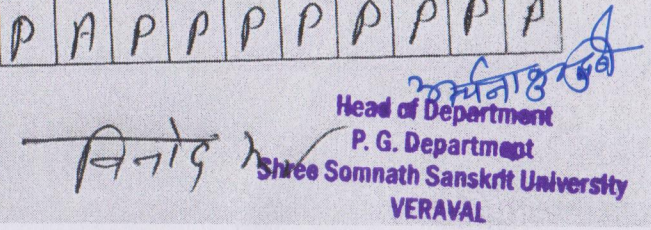 P A P P P P P P P P
अर्चना
Head of Department
विनोद
P. G. Department
Shree Somnath Sanskrit University
VERAVAL